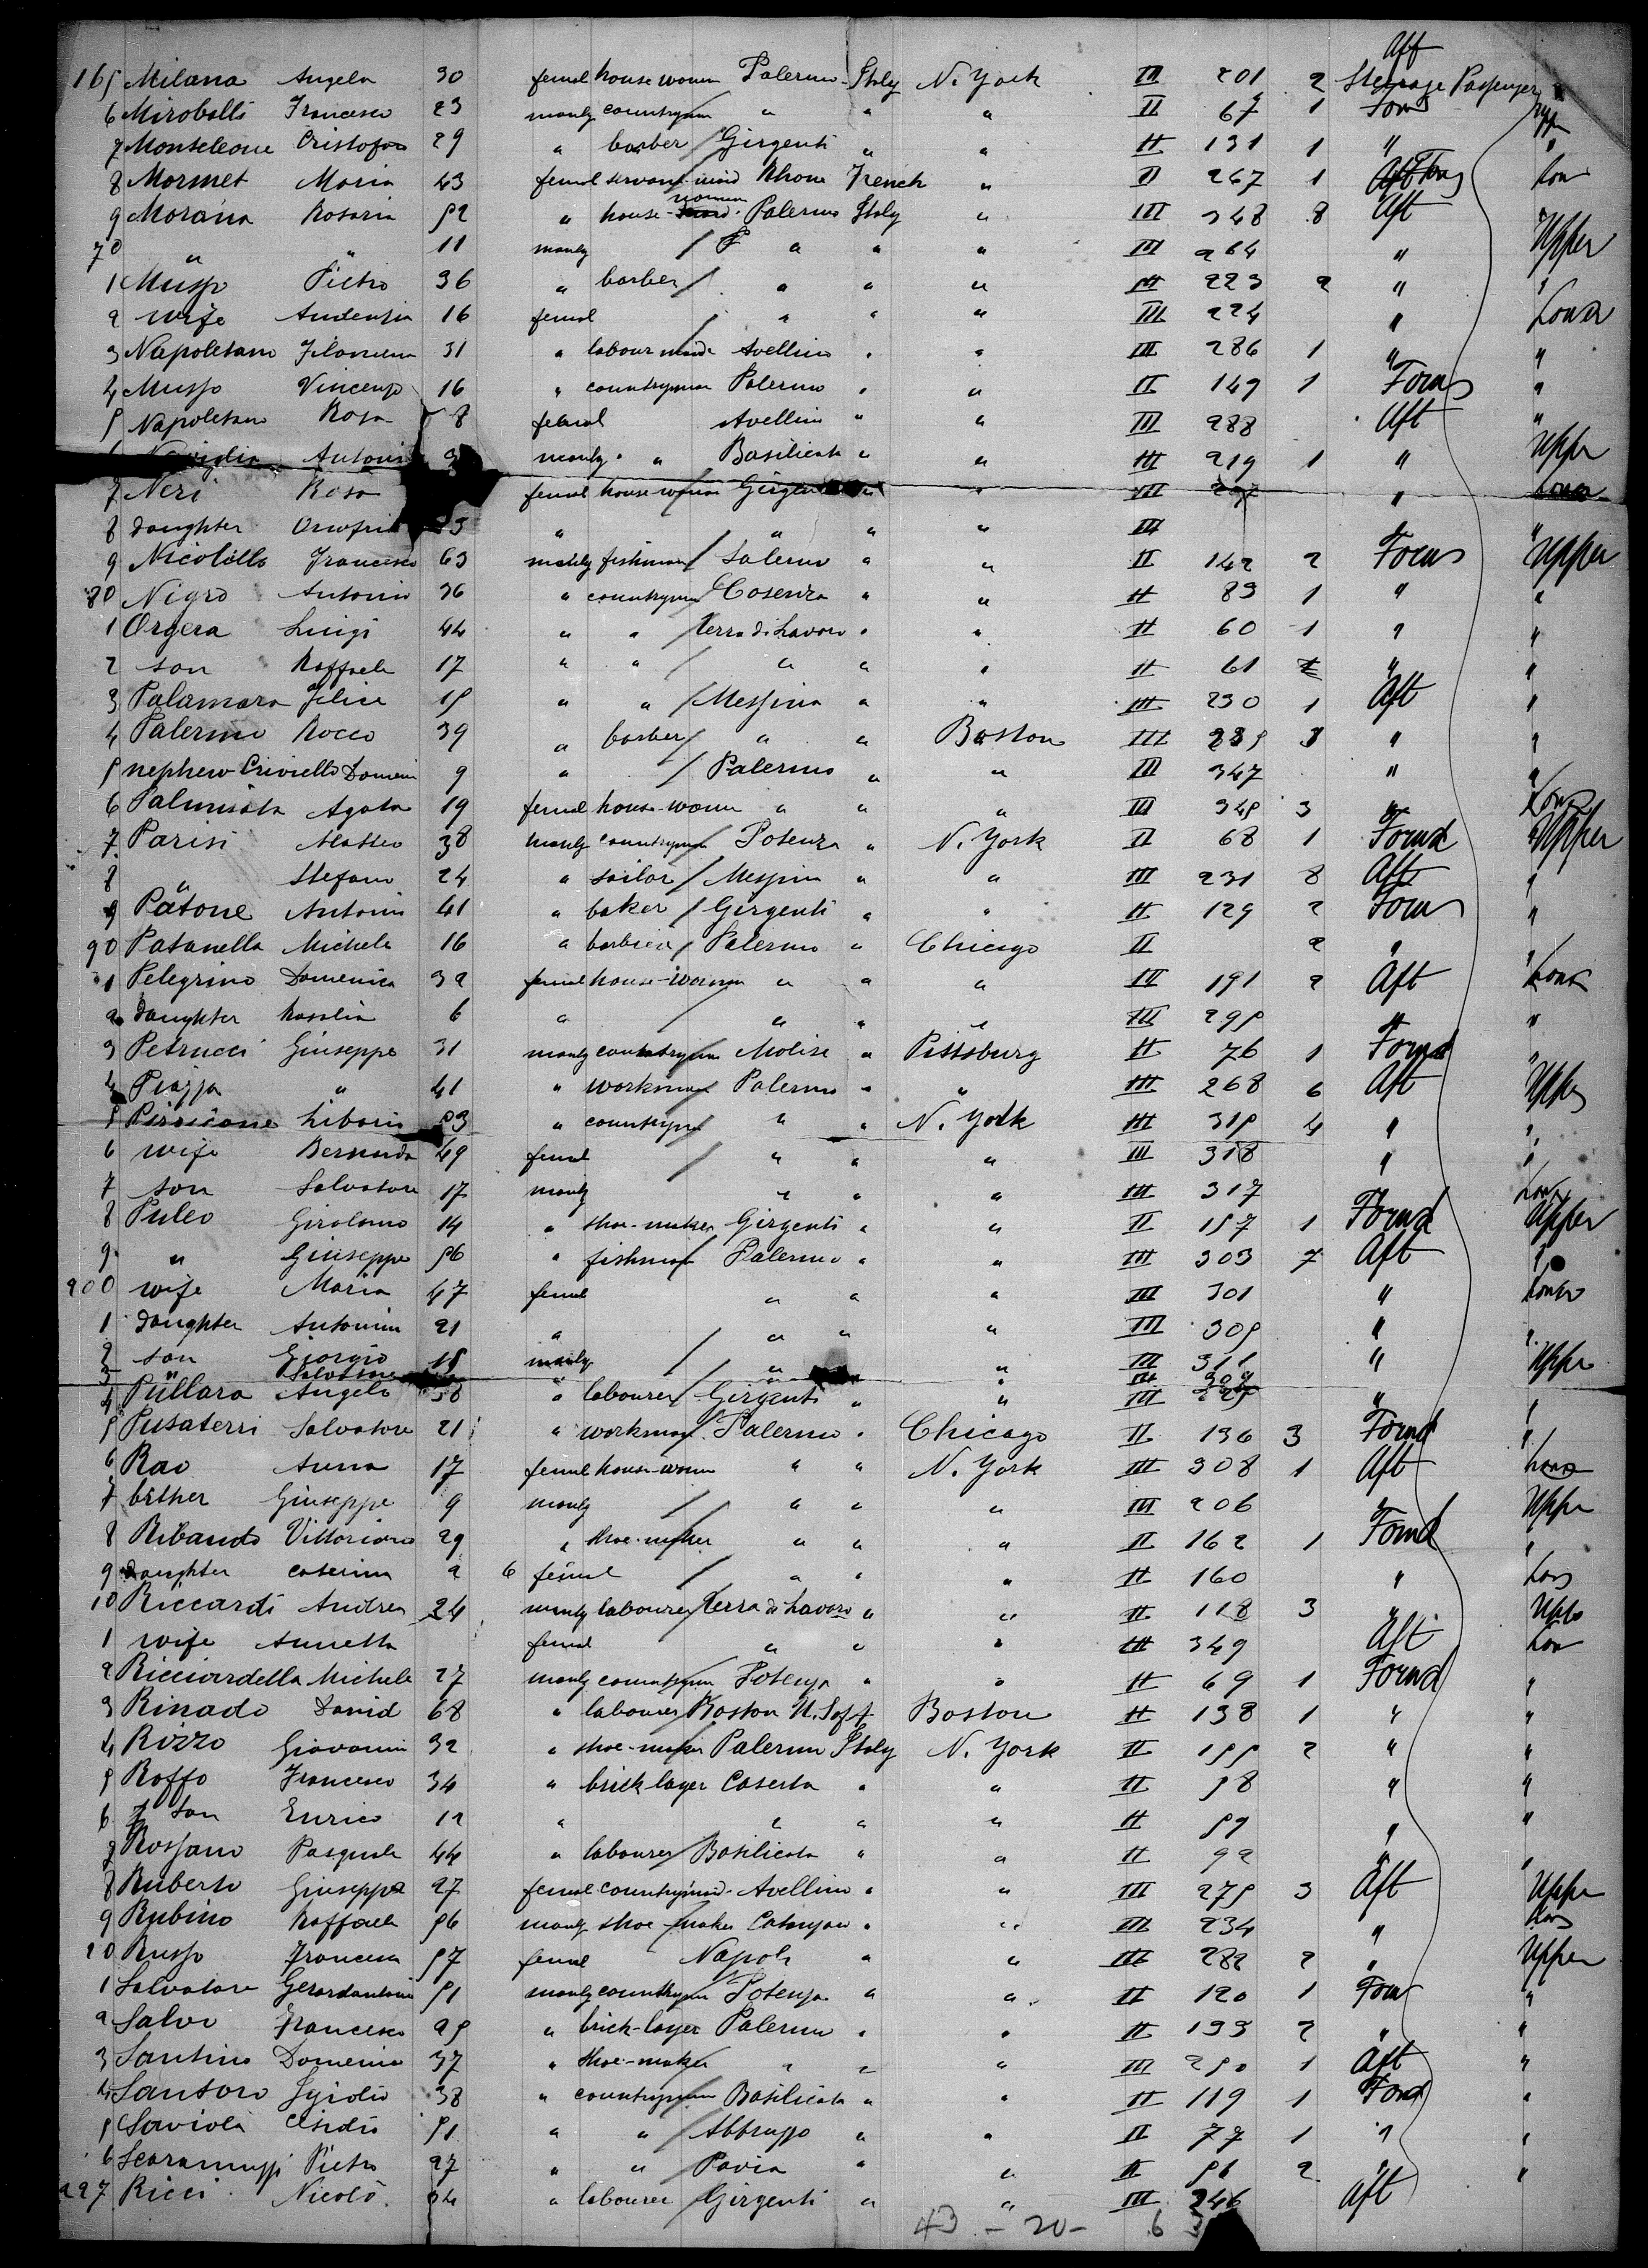 Aft
165 Milana Angela 30 femal house women Palermo Italy N. York III 201 2 Steerage Passenger
6 Francesco 23 manly countryman " " " II 67 1 Forw
7 Monteleone Cristoforo 29 " barber Girgenti " " II 131 1 " "
8 Mormet Maria 43 femal servant-maid Rhone French " II 267 1 Aft Low
9 Morana Rosaria 52 " house-women Palermo Italy " III 348 8 Aft "
70 " " 11 manly " " " III 264 " Upper
1 Musso Pietro 36 " barber " " " III 223 2 " "
2 wife 16 femal " " " III 224 " Lower
3 Napoletano Filomena 31 " labour maid Avellino " " III 286 1 " "
4 Musso Vincenzo 16 " countryman Palermo " " II 149 1 Forw "
5 Napoletano Rosa 8 femal Avellino " " III 288 Aft "
manly " Basilicata " " III 219 1 " Upper
7 Neri Rosa femal house woman " " III " Lower
8 daughter " " " " III "
9 Nicolello Francesco 63 manly fishman Salerno " " II 142 2 Forw Upper
80 Nigro Antonio 36 " countryman Cosenza " " II 83 1 " "
1 Orgera Luigi 44 " " Terra di Lavoro " " II 60 1 " "
2 son Raffaele 17 " " " " " II 61 " "
3 Palamara Felice 15 " " Messina " " III 230 1 Aft "
4 Palermo Rocco 39 " barber " " Boston III " "
5 nephew Criviello Domenic 9 " Palermo " " III 347 " "
6 Agata 19 femal house-women " " " III 345 3 " Low
7 Parisi Matteo 38 manly countryman Potenza " N. York II 68 1 Forwd Upper
8 " Stefano 24 " sailor Messina " " III 231 8 Aft "
9 Patone Antonin 41 " baker Girgenti " " II 129 2 Forw "
90 Patanella Michele 16 " Palermo " Chicago II 2 " "
1 Pelegrino Domenica 32 femal house-woman " " " III 191 2 Aft Lower
2 daughter Rosalia 6 " " " " III 295 " "
3 Petrucci Giuseppe 31 manly countryman Molise " Pittsburg II 76 1 Forwd "
4 Piazza " 41 " workman Palermo " " III 268 6 Aft Upper
5 Pirricone Liborio 53 " countryman " " N. York III 315 4 " "
6 wife Bernarda 49 femal " " " III 318 " "
7 son Salvatore 17 manly " " " III 317 Low
8 Puleo Girolamo 14 " shoe-maker Girgenti " " II 157 1 Forwd Upper
9 " Giuseppe 56 " fishman Palermo " " III 303 7 Aft "
200 wife Maria 47 femal " " " III 301 " Lower
1 daughter Antonina 21 " " " " III 305 " "
2 son Giorgio 18 manly " " III 311 " Upper
3 " Salvatore " " III
4 Pullara Angelo 38 " labourer Girgenti " " III " "
5 Pusaterri Salvatore 21 " workman Palermo " Chicago II 136 3 Forwd "
6 Rao Anna 17 femal house-women " " N. York III 308 1 Aft Lower
7 Giuseppe 9 manly " " " III 206 " Upper
8 Ribaudo Vittoriano 29 " shoe-maker " " " II 162 1 Forwd "
9 daughter Caterina 2 6 femal " " " II 160 " Low
10 Riccardi Andrea 24 manly labourer Terra di Lavoro " " II 118 3 " Upper
1 wife Annetta femal " " " III 349 Aft Low
2 Ricciardella Michele 27 manly countryman Potenza " " II 69 1 Forwd "
3 Rinado David 68 " labourer Boston Boston II 138 1 " "
4 Rizzo Giovanni 32 " shoe-maker Palermo Italy N. York II 155 2 " "
5 Roffo Francesco 34 " brick layer Caserta " " II 58 " "
6 son Enrico 12 " " " " II 59 " "
7 Rossano Pasquale 44 " labourer Basilicata " " II 92 " "
8 Ruberto Giuseppa 27 femal Avellino " " III 275 3 Aft Upper
9 Rubino Raffaele 56 manly shoe-maker " " III 234 " Low
20 Russo Francesca 57 femal Napoli " " III 282 2 " Upper
1 Salvatore Gerardantonio 51 manly countryman Potenza " " II 120 1 Forw "
2 Salvo Francesco 25 " brick-layer Palermo " " II 133 2 " "
3 Santino Domenico 37 " shoe-maker " " " III 250 1 Aft "
4 Santoro Egidio 38 " countryman Basilicata " " II 119 1 Forwd "
5 Saviola 51 " " Abbruzzo " " II 77 1 " "
6 Scaramuzzi Pietro 27 " " Pavia " " II 2 " "
227 Ricci Nicolò 34 " labourer Girgenti " " III 246 Aft
43 - 20 - 6